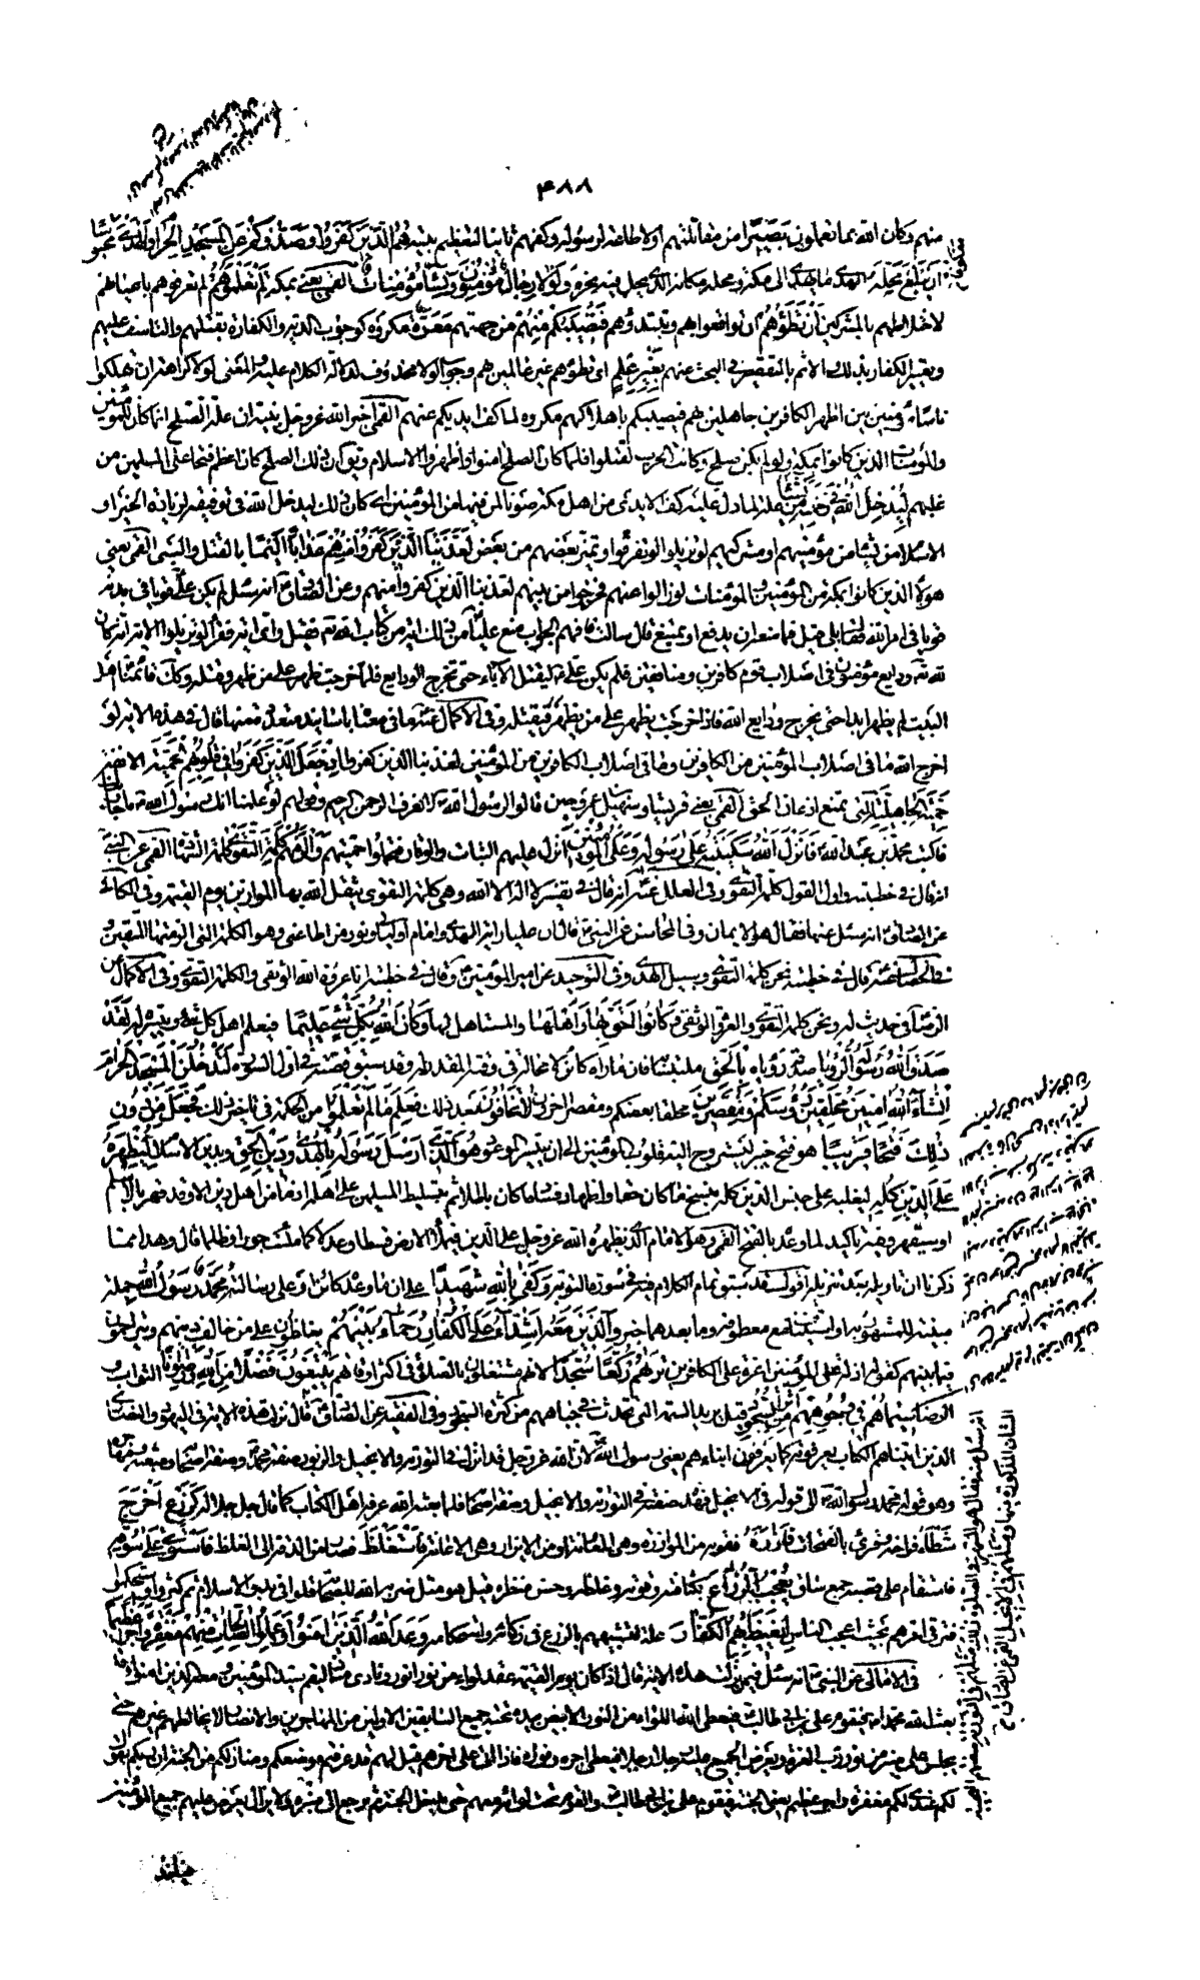 ۴۸۸
منهم وكان الله بما تعملون بصيرا من مقاتلتهم اولا طاعة لرسوله وكفهم ثانيا لتعظيم بيته هم الذين كفروا وصدوكم عن المسجد الحرام والهدي معكوفا
ان يبلغ محله الهدي ما يهدى الى مكة ومحله مكانه الذي يحل فيه نحره ولولا رجال مؤمنون ونساء مؤمنات القمي يعني بمكة لم تعلموهم لم تعرفوهم باعيانهم
لاختلاطهم بالمشركين ان تطؤهم ان تواقعوا بهم وتبتدؤهم فتصيبكم منهم من جهتهم معرة مكروه كوجوب الدية والكفارة بقتلهم والتاسف عليهم
وتعيير الكفار بذلك والاثم بالتقصير في البحث عنهم بغير علم اي تطؤهم غير عالمين بهم وجواب لولا محذوف لدلالة الكلام عليه والمعنى لولا كراهة ان تهلكوا
ناسا مؤمنين بين اظهر الكافرين جاهلين بهم فيصيبكم باهلاكهم مكروه لما كف ايديكم عنهم القمي اخبر الله عز وجل نبيه ان علة الصلح انما كان للمؤمنين
والمؤمنات الذين كانوا بمكة ولو لم يكن صلح وكانت الحرب لقتلوا فلما كان الصلح امنوا واظهروا الاسلام ويق ان ذلك الصلح كان اعظم فتحا على المسلمين من
غلبهم ليدخل الله في رحمته من يشاء علة لما دل عليه كف الايدى من اهل مكة صونا لمن فيها من المؤمنين اي كان ذلك ليدخل الله في توفيقه لزيادة الخير او
الاسلام من يشاء من مؤمنيهم او مشركيهم لو تزيلوا لو تفرقوا وتميز بعضهم من بعض لعذبنا الذين كفروا منهم عذابا اليما بالقتل والسبي القمي يعني
هؤلاء الذين كانوا بمكة من المؤمنين والمؤمنات لو زالوا عنهم فخرجوا من بينهم لعذبنا الذين كفروا منهم وعن الصادق انه سئل الم يكن علي قويا في بدنه
قويا في امر الله فقال بلى قيل فما منعه ان يدفع او يمتنع قال سالت فافهم الجواب منع عليا من ذلك اية من كتاب الله تع فقيل واى اية فقرا لو تزيلوا الاية انه كان
لله تع ودايع مؤمنون في اصلاب قوم كافرين ومنافقين فلم يكن علي ليقتل الاباء حتى تخرج الودايع فلما خرجت ظهر على من ظهر وقتله وكذلك قائمنا اهل
البيت لم يظهر ابدا حتى تخرج ودايع الله فاذا خرجت يظهر على من يظهر فيقتله وفى الاكمال عنه ما في معناه باسانيد متعددة منها قال في هذه الاية لو
اخرج الله ما في اصلاب المؤمنين من الكافرين وما في اصلاب الكافرين من المؤمنين لعذبنا الذين كفروا اذ جعل الذين كفروا في قلوبهم الحمية الانفة
حمية الجاهلية التي تمنع اذعان الحق القمي يعني قريشا وسهيل بن عمرو حين قالوا لرسول الله لا نعرف الرحمن الرحيم وقولهم لو علمنا انك رسول الله ما حاربناك
فاكتب محمد بن عبد الله فانزل الله سكينته على رسوله وعلى المؤمنين انزل عليهم الثبات والوقار فتحملوا حميتهم والزمهم كلمة التقوى كلمة الشهادة القمي عن النبي
انه قال في خطبته واولى القول كلمة التقوى وفى العلل عنه انه قال في تفسير لا اله الا الله وهى كلمة التقوى يثقل الله بها الموازين يوم القيمة وفى الكافي
عن الصادق انه سئل عنها فقال هو الايمان وفى المجالس عن النبي قال ان عليا راية الهدى وامام اوليائي ونور من اطاعنى وهو الكلمة التي الزمتها المتقين
وفى الخصال عنه قال في خطبته نحن كلمة التقوى وسبيل الهدى وفى التوحيد عن امير المؤمنين قال في خطبته انا عروة الله الوثقى والكلمة التقوى وفى الاكمال عن
الرضا في حديث له ونحن كلمة التقوى والعروة الوثقى وكانوا احق بها واهلها والمستاهل لها وكان الله بكل شيء عليما فيعلم اهل كل شيء وييسره له لقد
صدق الله رسوله الرؤيا صدقه رؤياه بالحق ملتبسا فان ما راه كائن لا محالة في وقته المقدر له وقد سبق قصته في اول السورة لتدخلن المسجد الحرام
ان شاء الله امنين محلقين رؤسكم ومقصرين محلقا بعضكم ومقصرا اخرون لا تخافون بعد ذلك فعلم ما لم تعلموا من الحكمة في تاخير ذلك فجعل من دون
ذلك فتحا قريبا هو فتح خيبر ليستروح اليه قلوب المؤمنين الى ان يتيسر الموعود هو الذي ارسل رسوله بالهدى ودين الحق وبدين الاسلام ليظهره
على الدين كله ليغلبه على جنس الدين كله بنسخ ما كان حقا واظهار فساد ما كان باطلا ثم بتسليط المسلمين على اهله اذ ما من اهل دين الا وقد قهر بالاسلام
او سيقهر وفيه تاكيد لما وعد بالفتح القمي وهو الامام الذي يظهره الله عز وجل على الدين كله فيملا الارض قسطا وعدلا كما ملئت جورا وظلما قال وهذا مما
ذكرنا ان تاويله بعد تنزيله اقول قد سبق تمام الكلام فيه في سورة التوبة وكفى بالله شهيدا على ان ما وعده كائن او على رسالته محمد رسول الله جملة
مبينة للمشهود به او استيناف مع معطوفه وما بعدهما خبر والذين معه اشداء على الكفار رحماء بينهم يغلظون على من خالف دينهم ويتراحمون
فيما بينهم كقوله اذلة على المؤمنين اعزة على الكافرين تراهم ركعا سجدا لانهم مشتغلون بالصلوة في اكثر اوقاتهم يبتغون فضلا من الله ورضوانا الثواب و
الرضا سيماهم في وجوههم من اثر السجود قيل يريد السمة التي تحدث في جباههم من كثرة السجود وفى الفقيه عن الصادق قال نزل هذه الاية في اليهود والنصارى
الذين اتيناهم الكتاب يعرفونه كما يعرفون ابناءهم يعني رسول الله لان الله عز وجل قد انزل في التورية والانجيل والزبور صفة محمد وصفة اصحابه ومبعثه ومهاجره
وهو قوله محمد رسول الله الى قوله في الانجيل فهذه صفته في التورية والانجيل وصفة اصحابه فلما بعثه الله عرفه اهل الكتاب كما قال جل جلاله كزرع اخرج
شطأه فراخه وقرئ بالفتحات فازره فقويه من الموازرة وهى المعاونة او من الايزار وهى الاعانة فاستغلظ فصار من الدقة الى الغلظ فاستوى على سوقه
فاستقام على قصبه جمع ساق يعجب الزراع بكثافته وقوته وغلظه وحسن منظره قيل هو مثل ضربه الله للصحابة قلوا في بدو الاسلام ثم كثروا واستحكموا
فترقى امرهم بحيث اعجب الناس ليغيظ بهم الكفار علة لتشبيههم بالزرع في زكائه واستحكامه وعد الله الذين امنوا وعملوا الصالحات منهم مغفرة واجرا عظيما
في الامالى عن النبي انه سئل فيمن نزلت هذه الاية قال اذا كان يوم القيمة عقد لواء من نور انور ونادى مناد ليقم سيد المؤمنين ومعه الذين امنوا فقد
بعث الله محمدا فيقوم على بن ابي طالب فيعطى الله اللواء من النور الابيض بيده تحته جميع السابقين الاولين من المهاجرين والانصار لا يخالطهم غيرهم حتى
يجلس على منبر من نور رب العزة ويعرض الجميع عليه رجلا رجلا فيعطى اجره ونوره فاذا اتى على اخرهم قيل لهم قد عرفتم موضعكم ومنازلكم من الجنة ان ربكم يقول
لكم عندى لكم مغفرة واجر عظيم يعني الجنة فيقوم على بن ابي طالب والقوم تحت لوائه معهم حتى يدخل الجنة ثم يرجع الى منبره ولا يزال يعرض عليهم جميع المؤمنين